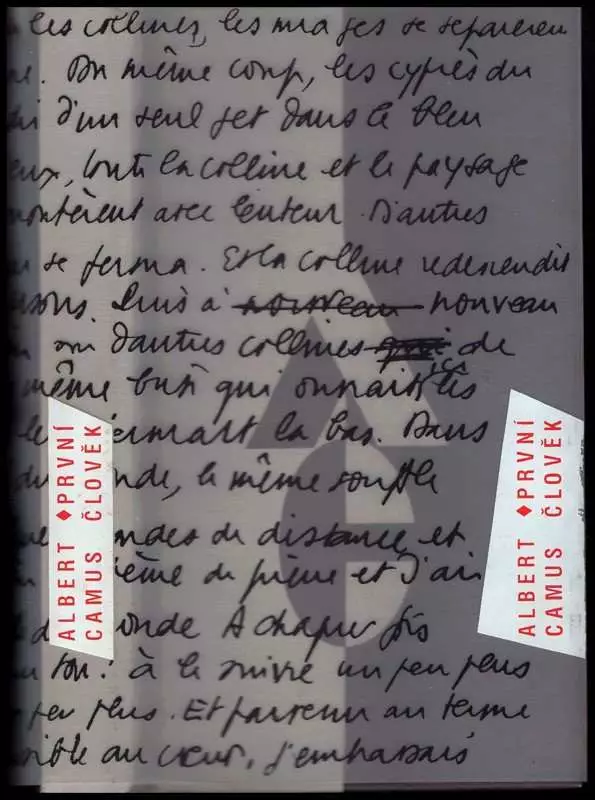 les collines, les nuages se séparèrent
Du même coup, les cyprès du
d'un seul jet dans le bleu
eux, toute la colline et le paysage
montèrent avec lenteur. D'autres
se ferma. Et la colline redescendit
Puis à nouveau nouveau
d'autres collines qui de
même qui les
là bas. Dans
le même souffle
de distance, et
de pierre et d'air
onde A chaque fois
à le suivre un peu plus
peu plus. Et parvenu au terme
au cœur, j'embrassais
ALBERT ♦ PRVNÍ
CAMUS ČLOVĚK
ALBERT ♦ PRVNÍ
CAMUS ČLOVĚK